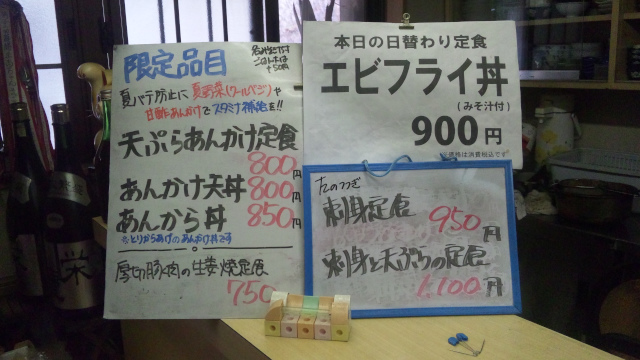 限定品目
夏バテ防止に夏野菜(クールベジ)や
甘酢あんかけでスタミナ補給を!!
天ぷらあんかけ定食
800円
あんかけ天丼 800円
あんから丼 850円
※とりからあげのあんかけ丼です
厚切豚肉の生姜焼定食
750
本日の日替わり定食
エビフライ丼
(みそ汁付)
900円
※価格は消費税込です
刺身定食 950円
刺身と天ぷらの定食
1,100円
栄